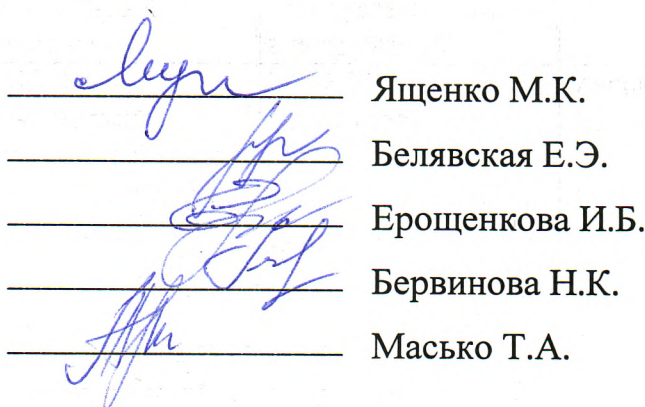 Ященко М.К.
Белявская Е.Э.
Ерощенкова И.Б.
Бервинова Н.К.
Масько Т.А.